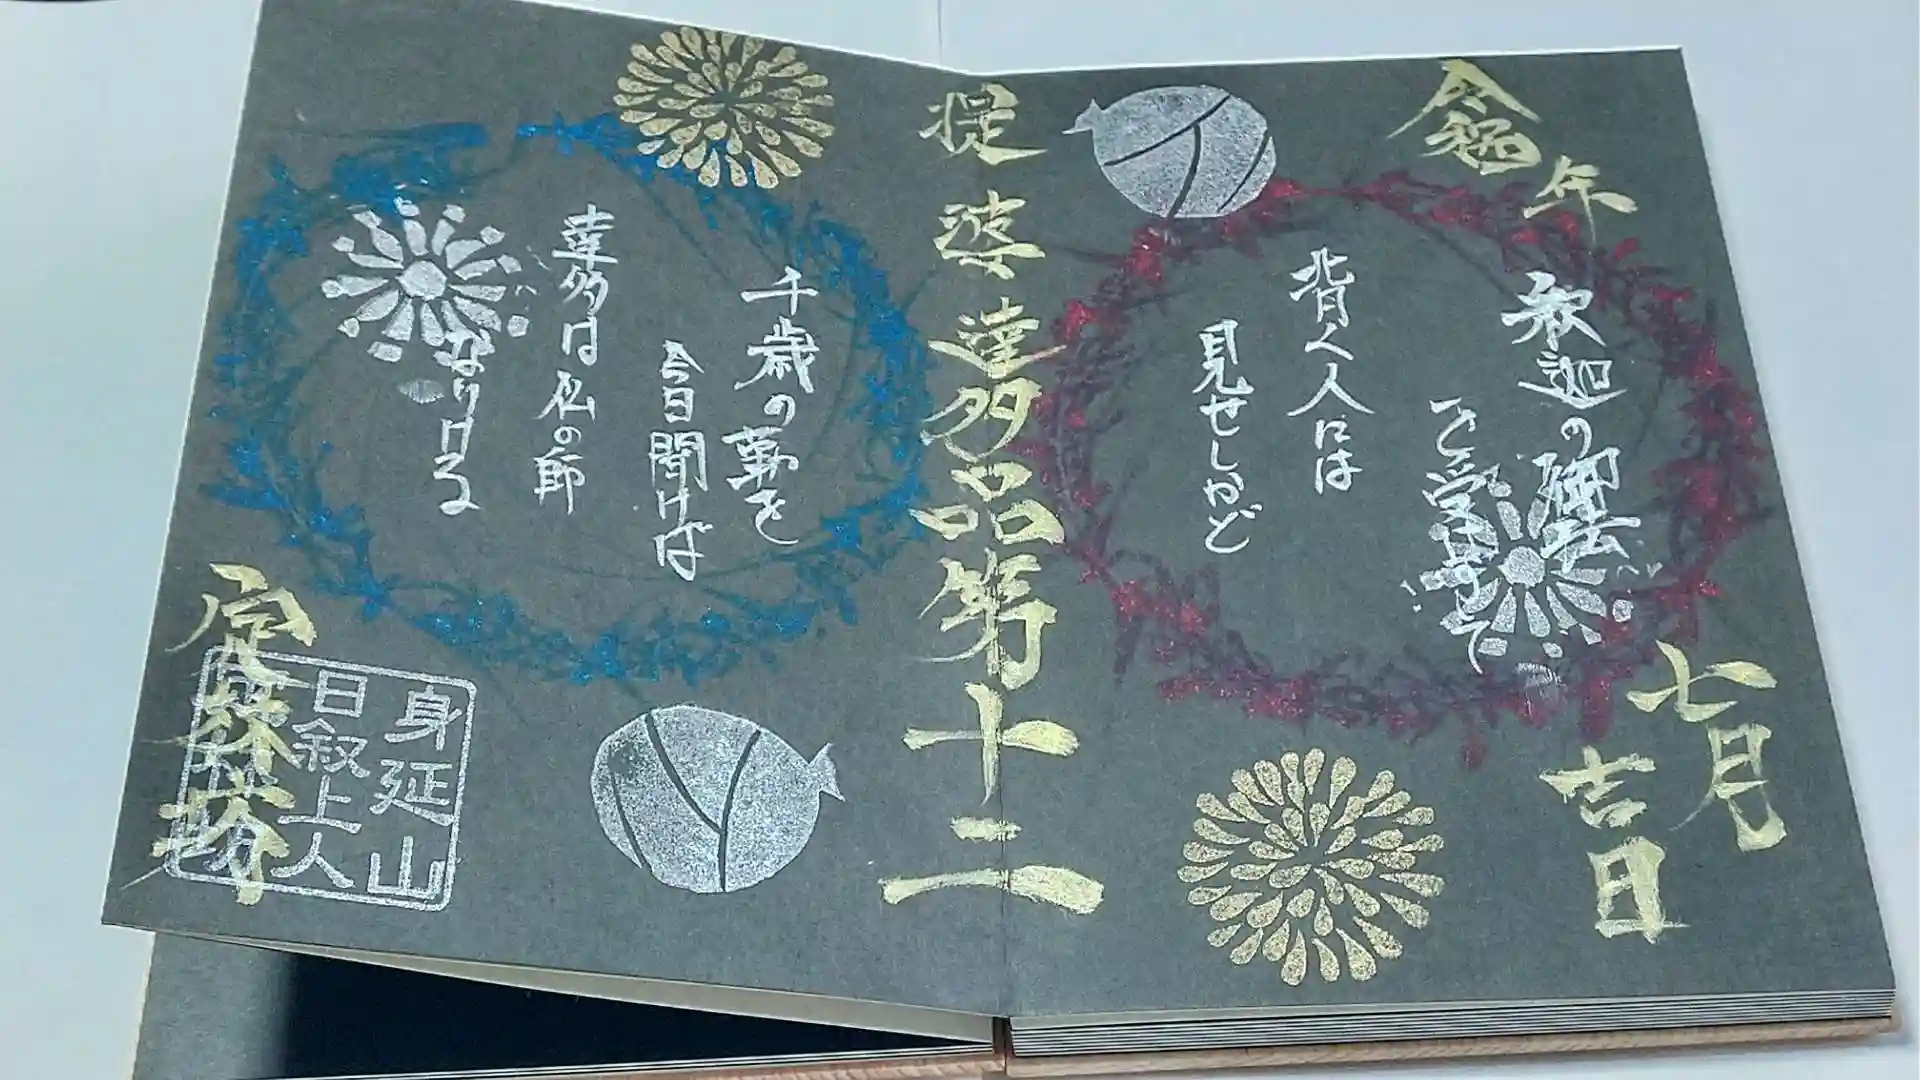 令和 年
七月
吉日
釈迦の御法
を受けずして
背く人には
見せしかど
提婆達多品第十二
千歳の勤を
今日聞けば
達多は仏の師
なりける
定林坊
身延山
日叙上人